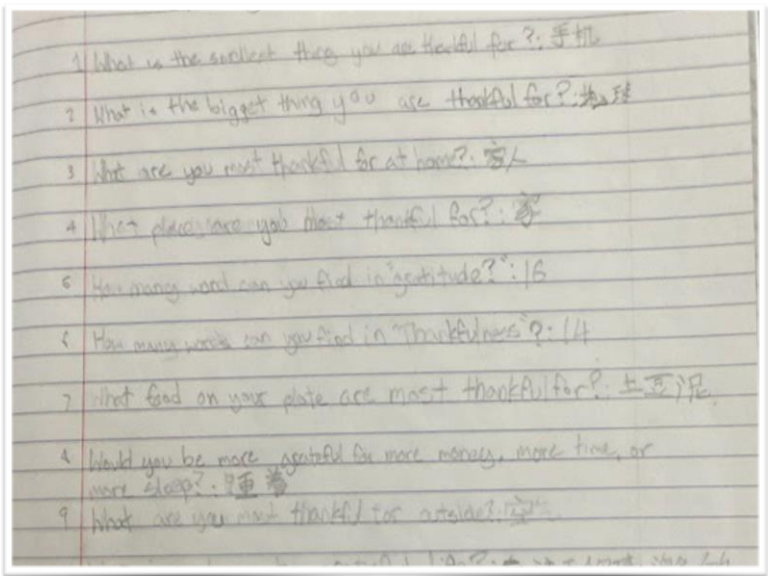 1 What is the smallest thing you are thankful for?: 手机
2 What is the bigget thing you are thankful for?: 地球
3 What are you most thankful for at home?: 家人
4 What places are you most thankful for?: 家
5 How many word can you find in "gratitude?": 16
6 How many words can you find in "Thankfulness"?: 14
7 What food on your plate are most thankful for?: 土豆泥
8 Would you be more grateful for more money, more time, or
more sleep?: 睡着
9 What are you most thankful for outside?: 空气